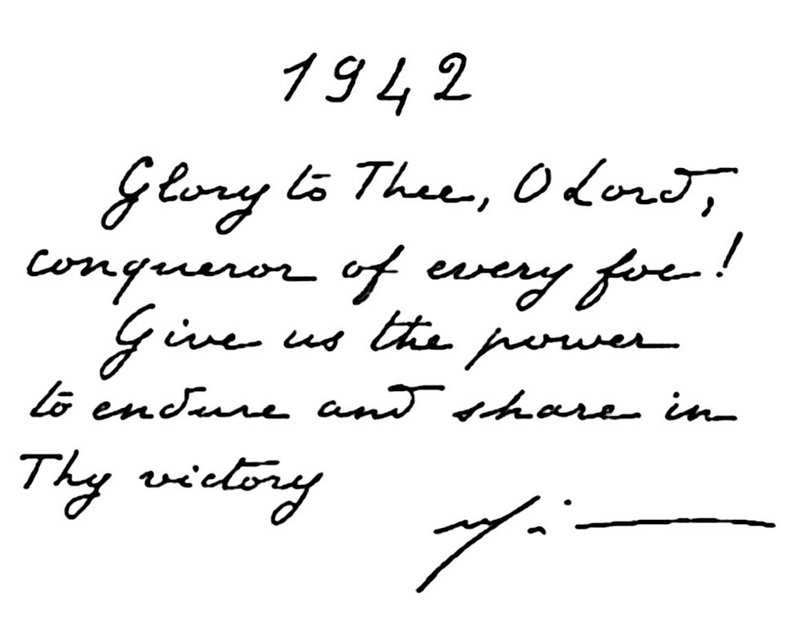 1942
Glory to Thee, O Lord,
conqueror of every foe!
Give us the power
to endure and share in
Thy victory